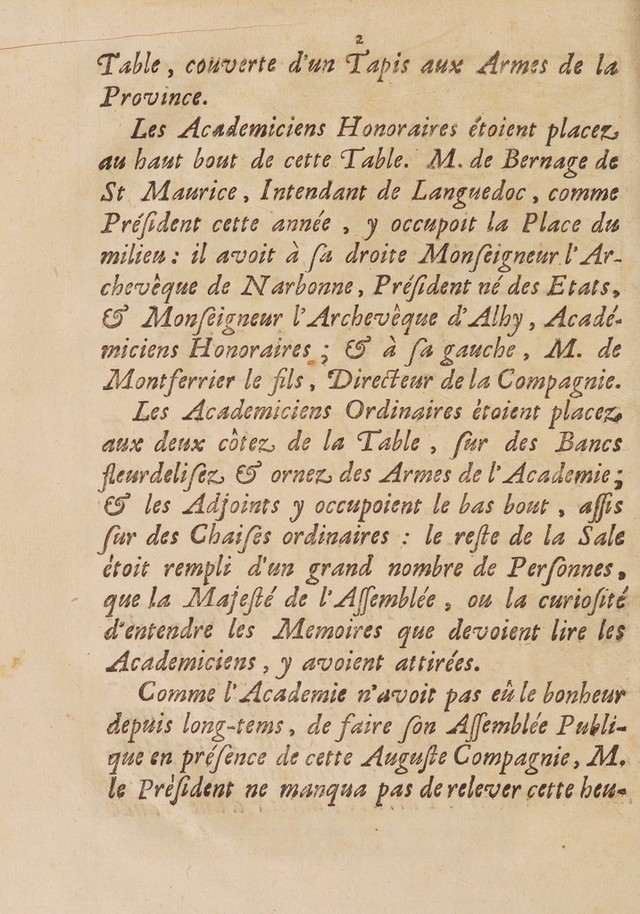 2
Table, couverte d'un Tapis aux Armes de la
Province.
Les Academiciens Honoraires étoient placez
au haut bout de cette Table. M. de Bernage de
St Maurice, Intendant de Languedoc, comme
Préſident cette année, y occupoit la Place du
milieu: il avoit à ſa droite Monſeigneur l'Ar-
chevèque de Narbonne, Préſident né des Etats,
& Monſeigneur l'Archevêque d'Alby, Acadé-
miciens Honoraires; & à ſa gauche, M. de
Montferrier le fils, Directeur de la Compagnie.
Les Academiciens Ordinaires étoient placez
aux deux côtez de la Table, ſur des Bancs
fleurdeliſez & ornez des Armes de l'Academie;
& les Adjoints y occupoient le bas bout, aſſis
ſur des Chaiſes ordinaires: le reſte de la Sale
étoit rempli d'un grand nombre de Perſonnes,
que la Majeſté de l'Aſſemblée, ou la curioſité
d'entendre les Memoires que devoient lire les
Academiciens, y avoient attirées.
Comme l'Academie n'avoit pas eû le bonheur
depuis long-tems, de faire ſon Aſſemblée Publi-
que en préſence de cette Auguſte Compagnie, M.
le Préſident ne manqua pas de relever cette heu-